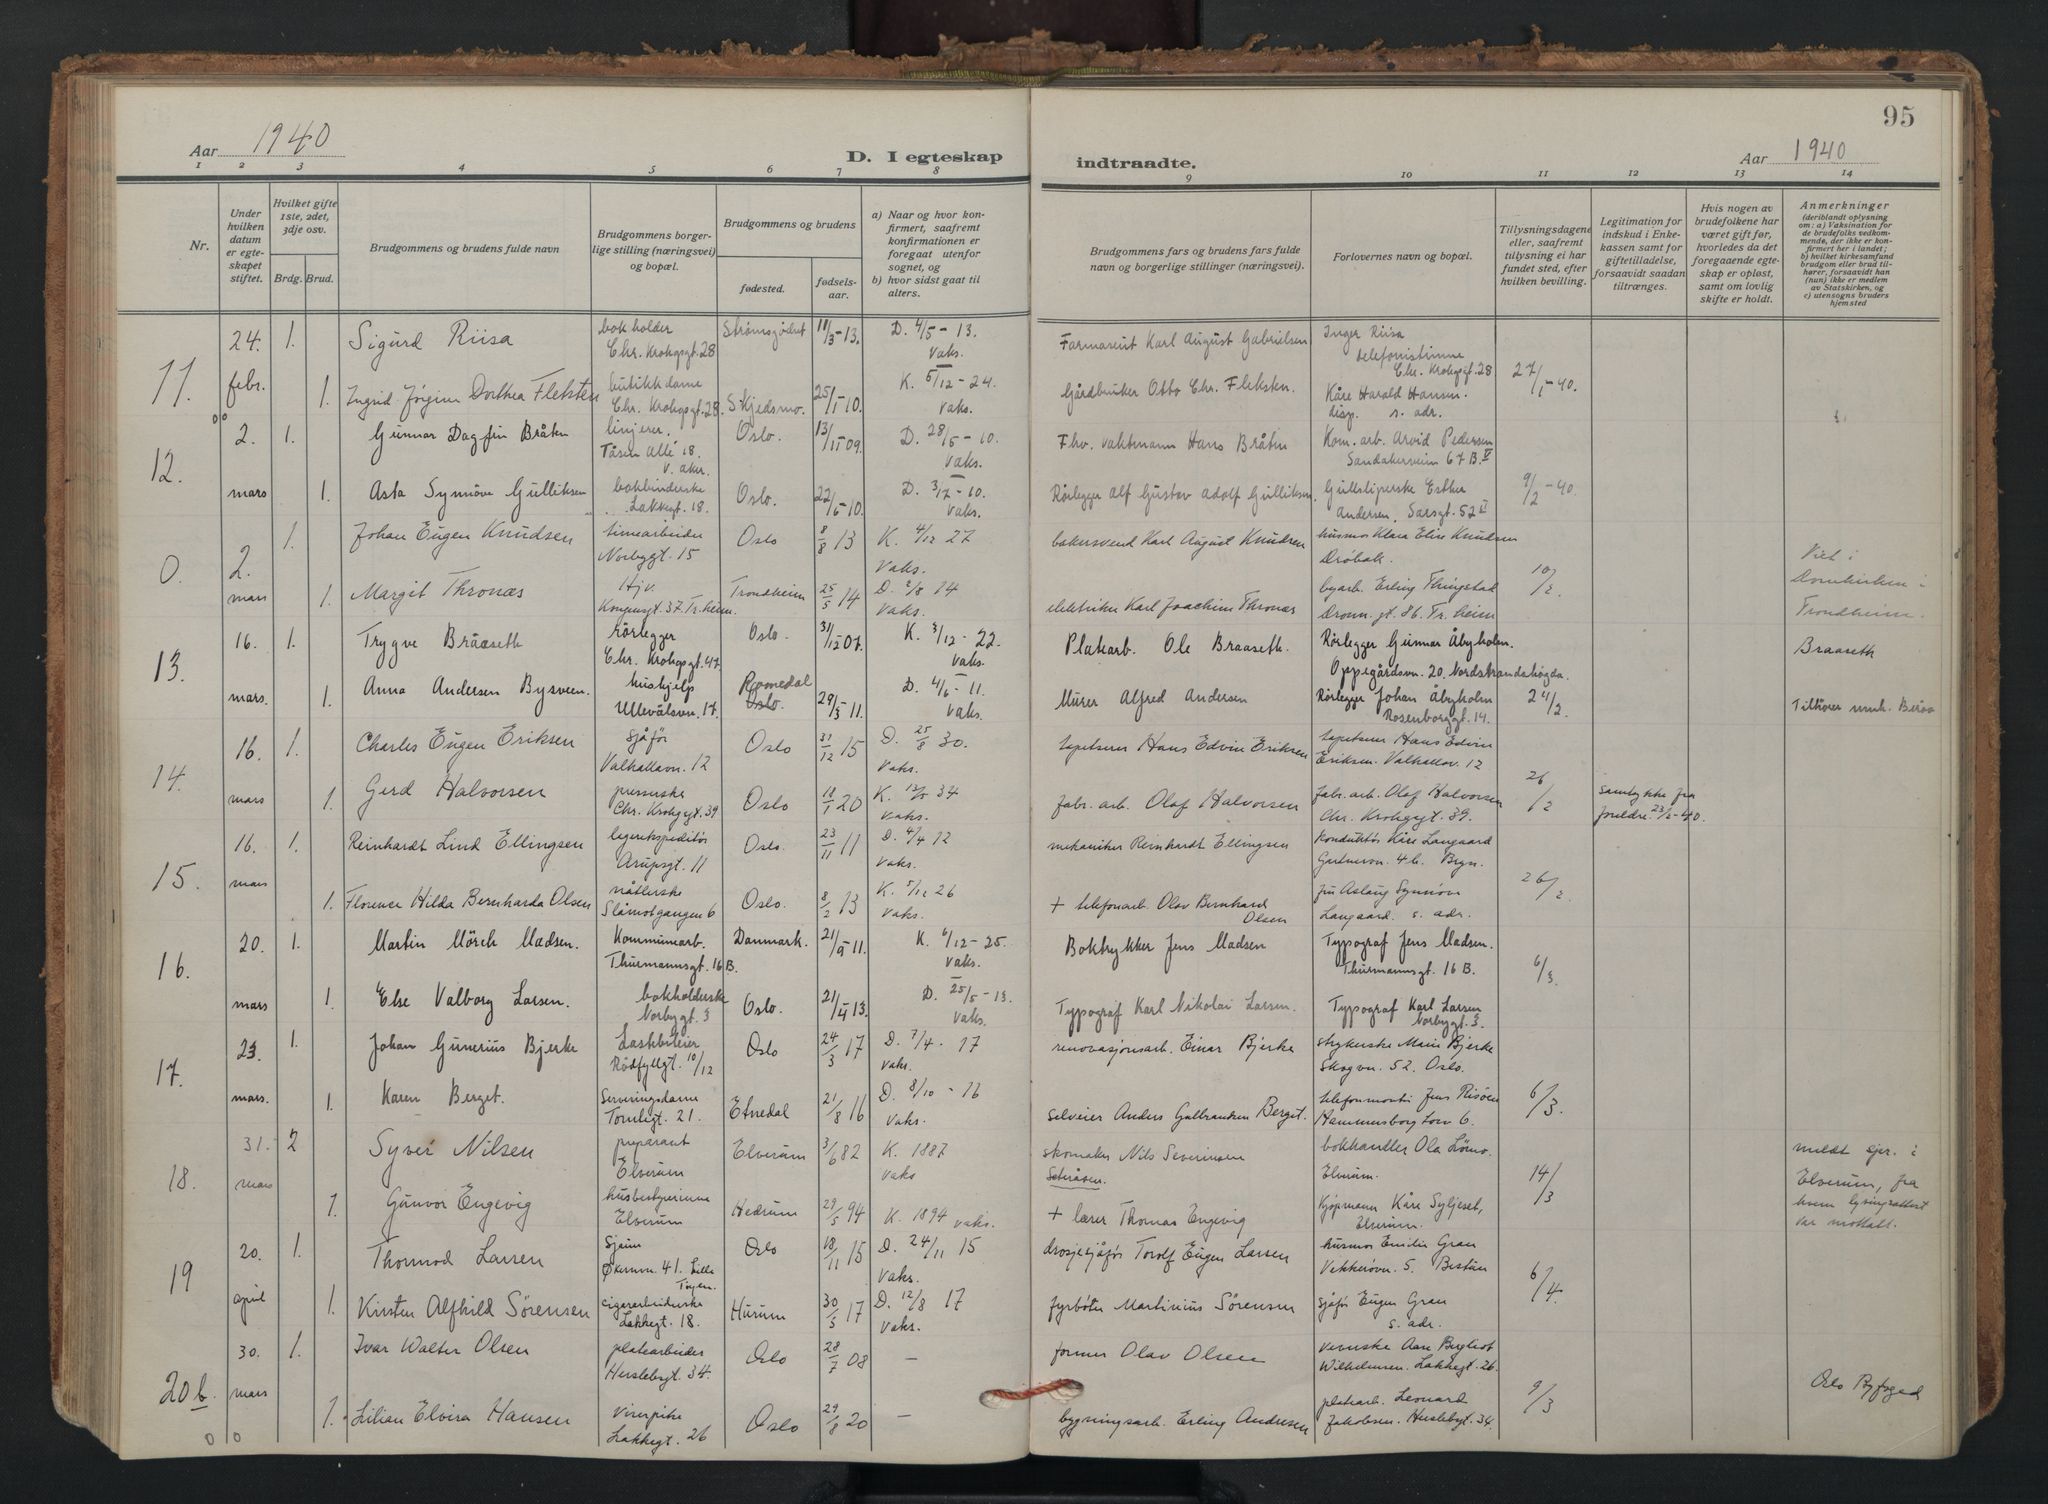 95
Aar 1940
D. I egteskap indtraadte.
Aar 1940
1 2 3 4 5 6 7 8 9 10 11 12 13 14
Nr.
Under hvilken datum er egteskapet stiftet.
Hvilket gifte 1ste, 2det, 3dje osv.
Brdg. Brud.
Brudgommens og brudens fulde navn
Brudgommens borgerlige stilling (næringsvei) og bopæl.
Brudgommens og brudens
fødested.
fødselsaar.
a) Naar og hvor konfirmert, saafremt konfirmationen er foregaat utenfor sognet, og
b) hvor sidst gaat til alters.
Brudgommens fars og brudens fars fulde navn og borgerlige stillinger (næringsvei).
Forlovernes navn og bopæl.
Tillysningsdagene eller, saafremt tillysning ei har fundet sted, efter hvilken bevilling.
Legitimation for indskud i Enkekassen samt for giftetilladelse, forsaavidt saadan tiltrænges.
Hvis nogen av brudefolkene har været gift før, hvorledes da det foregaaende egteskap er opløst, samt om lovlig skifte er holdt.
Anmerkninger
(deriblandt oplysning om: a) Vaksination for de brudefolks vedkommende, der ikke er konfirmert her i landet;
b) hvilket kirkesamfund brudgom eller brud tilhører, forsaavidt han (hun) ikke er medlem av Statskirken, og
c) utensogns bruders hjemsted
11. 24. febr. 1. Sigurd Riisa bokholder Chr. Krohgsgt. 28 Strømsgodset 11/3-13. D. 4/5-13. Vaks. Farmaseut Karl August Gabrielsen Inger Riisa telefonistinne Chr. Krohgsgt. 28 27/1-40.
1. Ingrid Jörgine Dorthea Fleksten butikkdame Chr. Krohgsgt. 28. Skjedsmo. 25/1-10. K. 5/12-24. Vaks. Gårdbruker Otto Chr. Fleksten. Kåre Harald Hansen. disp. s. adr.
12. 2. mars 1. Gunnar Dagfin Bråten linjerer. Tåsen Allé 18. V. Aker. Oslo. 13/11-09. D. 28/5-10. Vaks. Fhv. vaktmann Hans Bråten Kom. arb. Arvid Pedersen Sandakerveien 67 B. V 9/2-40.
1. Asta Synnöve Gulliksen bokbinderske Lakkegt. 18. Oslo. 22/6-10. D. 3/7-10. Vaks. Rörlegger Alf Gustav Adolf Gulliksen. Gullsliperske Esther Andersen, Sarsgt. 52
0. 2. mars 1. Johan Eugen Knudsen timearbeider Norbygt. 15 Oslo 8/8 13 K. 4/12 27 Vaks. bakersvend Karl August Knudsen husmor Klara Elise Knudsen Dröbak. 10/2. Viet i Domkirken i Trondheim.
1. Margit Thronæs Hjv. Kongensgt. 37. Tr.heim. Trondheim 25/5 14 D. 2/8 14 Vaks. elektriker Karl Joachim Thronæs byarb. Erling Thingstad Dronn. gt. 86. Tr. heim
13. 16. mars. 1. Trygve Bråaseth rörlegger Chr. Krohgsgt. 47 Oslo. 31/12 07. K. 3/12-22. Vaks. Platearb. Ole Braaseth. Rörlegger Gunnar Åbyholm. Oppegårdsvn. 20. Nordstrandshögda. 24/2. Braaseth
1. Anna Andersen Bysveen. hushjelp Ullevålsvn. 17. Romedal Oslo. 29/3 11. D. 4/6-11. Vaks. Murer Alfred Andersen Rörlegger Johan Åbyholm Rosenborggt. 14. Tilhører
14. 16. mars 1. Charles Eugen Eriksen sjåför Valhallavn. 12 Oslo 31/12 15 D. 25/8 30. Vaks. tapetserer Hans Edvin Eriksen tapetserer Hans Edvin Eriksen. Valhallav. 12 26/2
1. Gerd Halvorsen presserske Chr. Krohgsgt. 39 Oslo 18/1 20 K. 34 Vaks. fabr. arb. Olaf Halvorsen fabr. arb. Olaf Halvorsen Chr. Krohgsgt. 39. samtykke fra foreldre. 23/2-40.
15. 16. mars 1. Reinhardt Lind Ellingsen lagerekspeditör Arupsgt. 11 Oslo. 23/11 11 D. 4/4 12 Vaks. mekaniker Reinhardt Ellingsen konduktör Kåre Langaard Gartnervn. 4b. Bryn. 26/2.
1. Florence Hilda Bernharda Olsen nåtlerske Slåmotgangen 6 Oslo. 8/2 13 K. 5/12 26 Vaks. + telefonarb. Olav Bernhard Olsen fru Aslaug Synnöve Langaard. s. adr.
16. 20. mars 1. Martin Mörch Madsen. Kommunearb. Thurmannsgt. 16 B. Danmark. 21/9-11. K. 6/12-25. Vaks. Boktrykker Jens Madsen Typograf Jens Madsen. Thurmannsgt. 16 B. 6/3.
1. Else Valborg Larsen. bokholderske Norbygt. 3 Oslo. 21/4 13. D. 25/5-13. Vaks. Typograf Karl Nikolai Larsen. Typograf Karl Larsen Norbygt. 3.
17. 23. mars. 1. Johan Gunerius Bjerke Lastbileier Rödfyllgt. 10/12 Oslo 24/3 17 D. 7/4-17 Vaks. renovasjonsarb. Einar Bjerke strykerske Marie Bjerke Skogvn. 52. Oslo. 6/3.
1. Karen Berget. Serveringsdame Tomtegt. 21. Etnedal 21/8 16 D. 8/10-16 Vaks. selveier Anders Gulbrandsen Berget. telefonmontör Jens Risöen Hammersborg Torv 6.
18. 31. mars 2 Syver Nilsen preparant Elverum Elverum 3/6 82 K. 1887 Vaks skomaker Nils Severinsen Seteråsen. bokhandler Ola Lömo. Elverum. 14/3 meldt spr. i Elverum, fra hvem lysningsattest var mottatt.
1. Gunvor Engevig husbestyrerinne Elverum Hedrum 29/5 94 K. 1894 Vaks. + lærer Thomas Engevig kjöpmann Kåre Syljeset, Elverum.
19 20. april 1. Thormod Larsen Økernvn. 41. Lille Töyen. Oslo 18/11 15 D. 24/11 15 Vaks. drosjesjåför Torolf Eugen Larsen husmor Emilie Gran Vekkerövn. 5. Bestun 6/4.
1. Kirsten Alfhild Sörensen cigararbeiderske Lakkegt. 18. Hurum 30/5 17 D. 12/8 17 Vaks. fyrböter Martinius Sörensen sjåför Eugen Gran s. adr.
20 b. 30. mars 1. Ivar Walter Olsen platearbeider Herslebsgt. 34. Oslo 28/7 08 — former Olav Olsen Aase Bergliot Wilhelmsen. Lakkegt. 26. 9/3 Oslo Byfoged
1. Lilian Elvira Hansen Viserpike Lakkegt. 26 Oslo 29/8 20 — bygningsarb. Erling Andresen platearb. Leonard Jakobsen. Herslebsgt. 34.
0 0